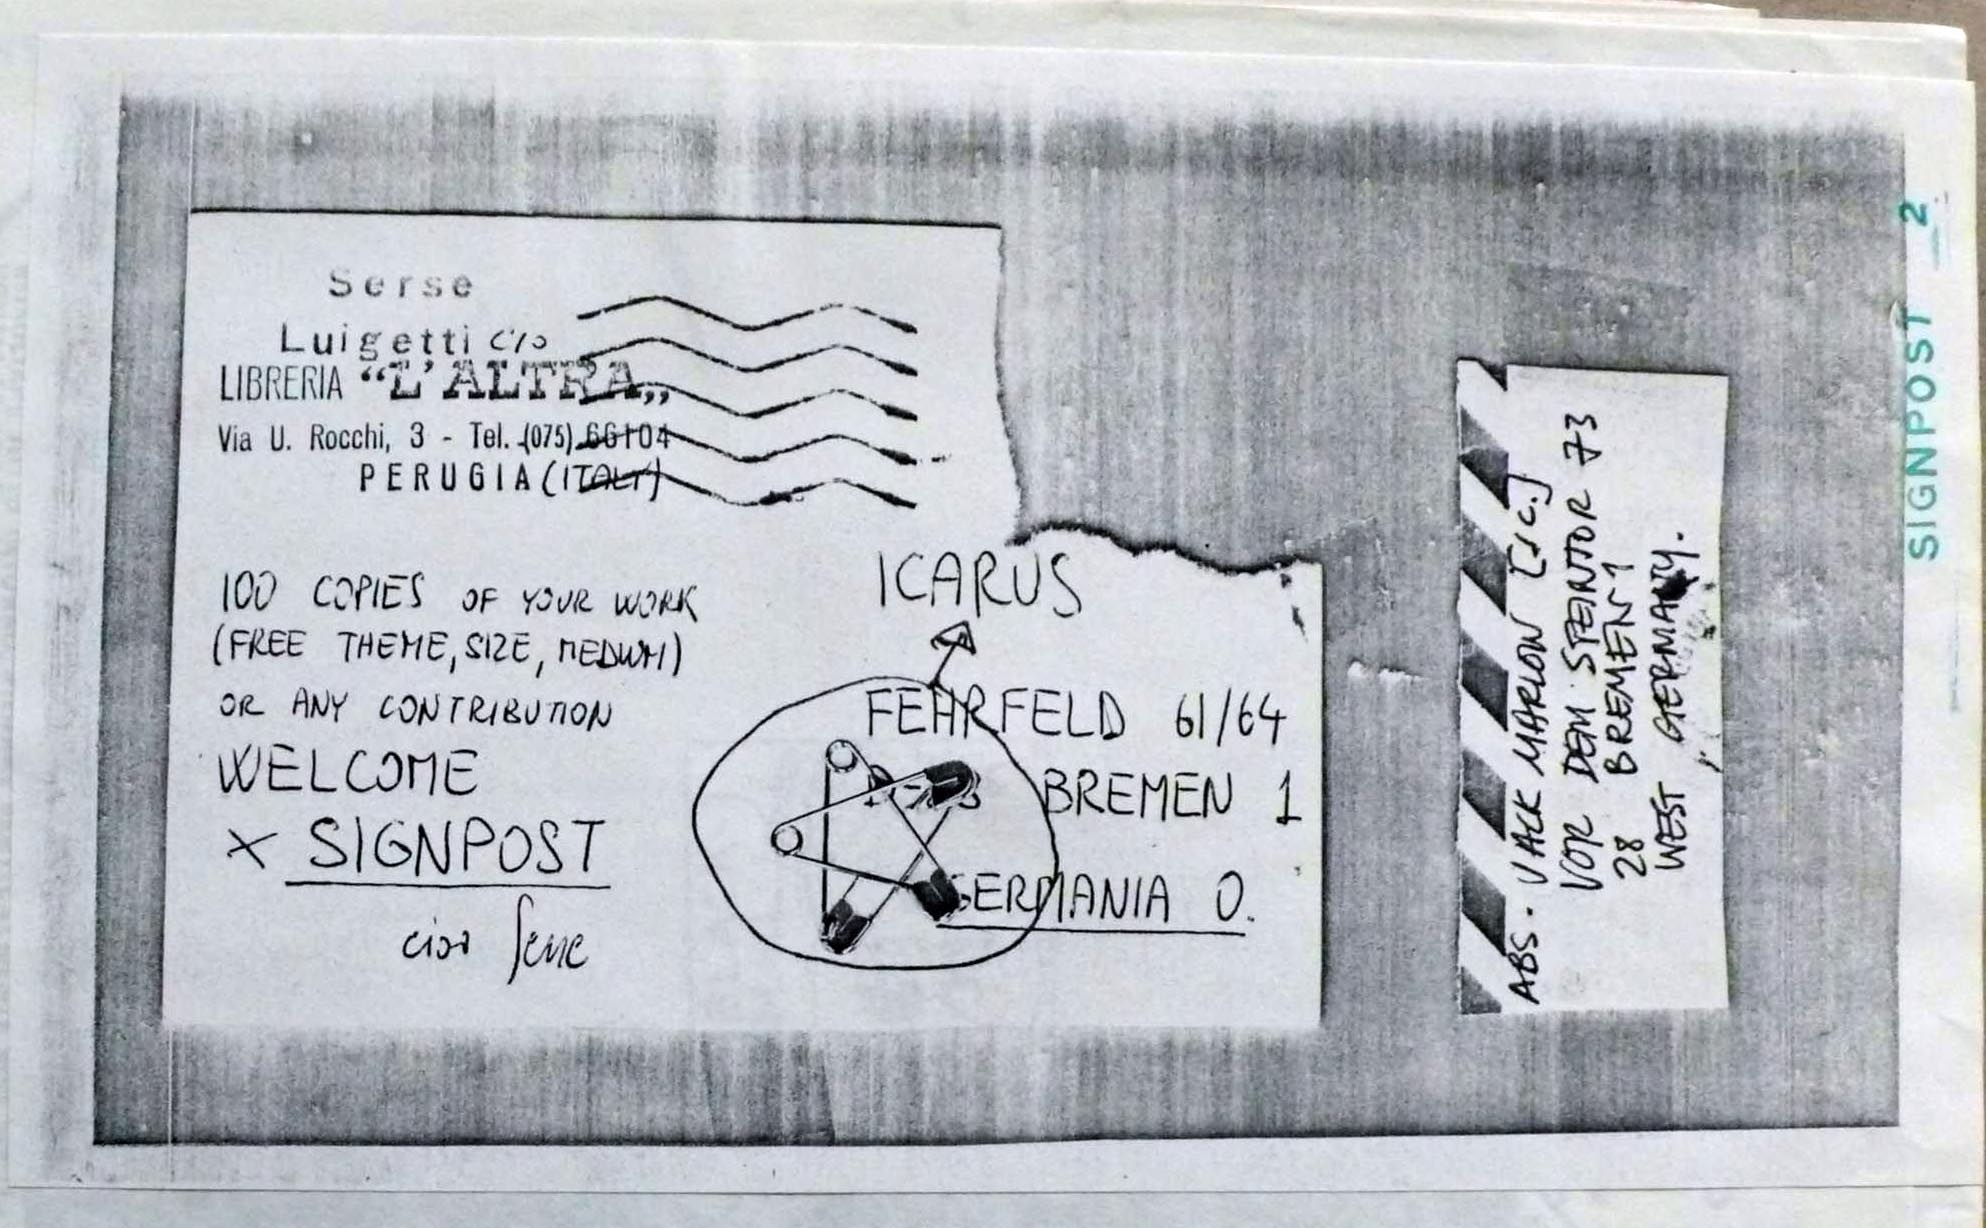 Serse
Luigetti c/o
LIBRERIA “L'ALTRA„
Via U. Rocchi, 3 - Tel. (075) 66104
PERUGIA (ITALY)
100 COPIES OF YOUR WORK
(FREE THEME, SIZE, MEDIUM)
OR ANY CONTRIBUTION
WELCOME
x SIGNPOST
ciao Serse
ICARUS
FEHRFELD 61/64
BREMEN 1
GERMANIA O.
ABS. VACK MARLOW
VOR DEM STEINTOR 73
28 BREMEN 1
WEST GERMANY.
SIGNPOST _2